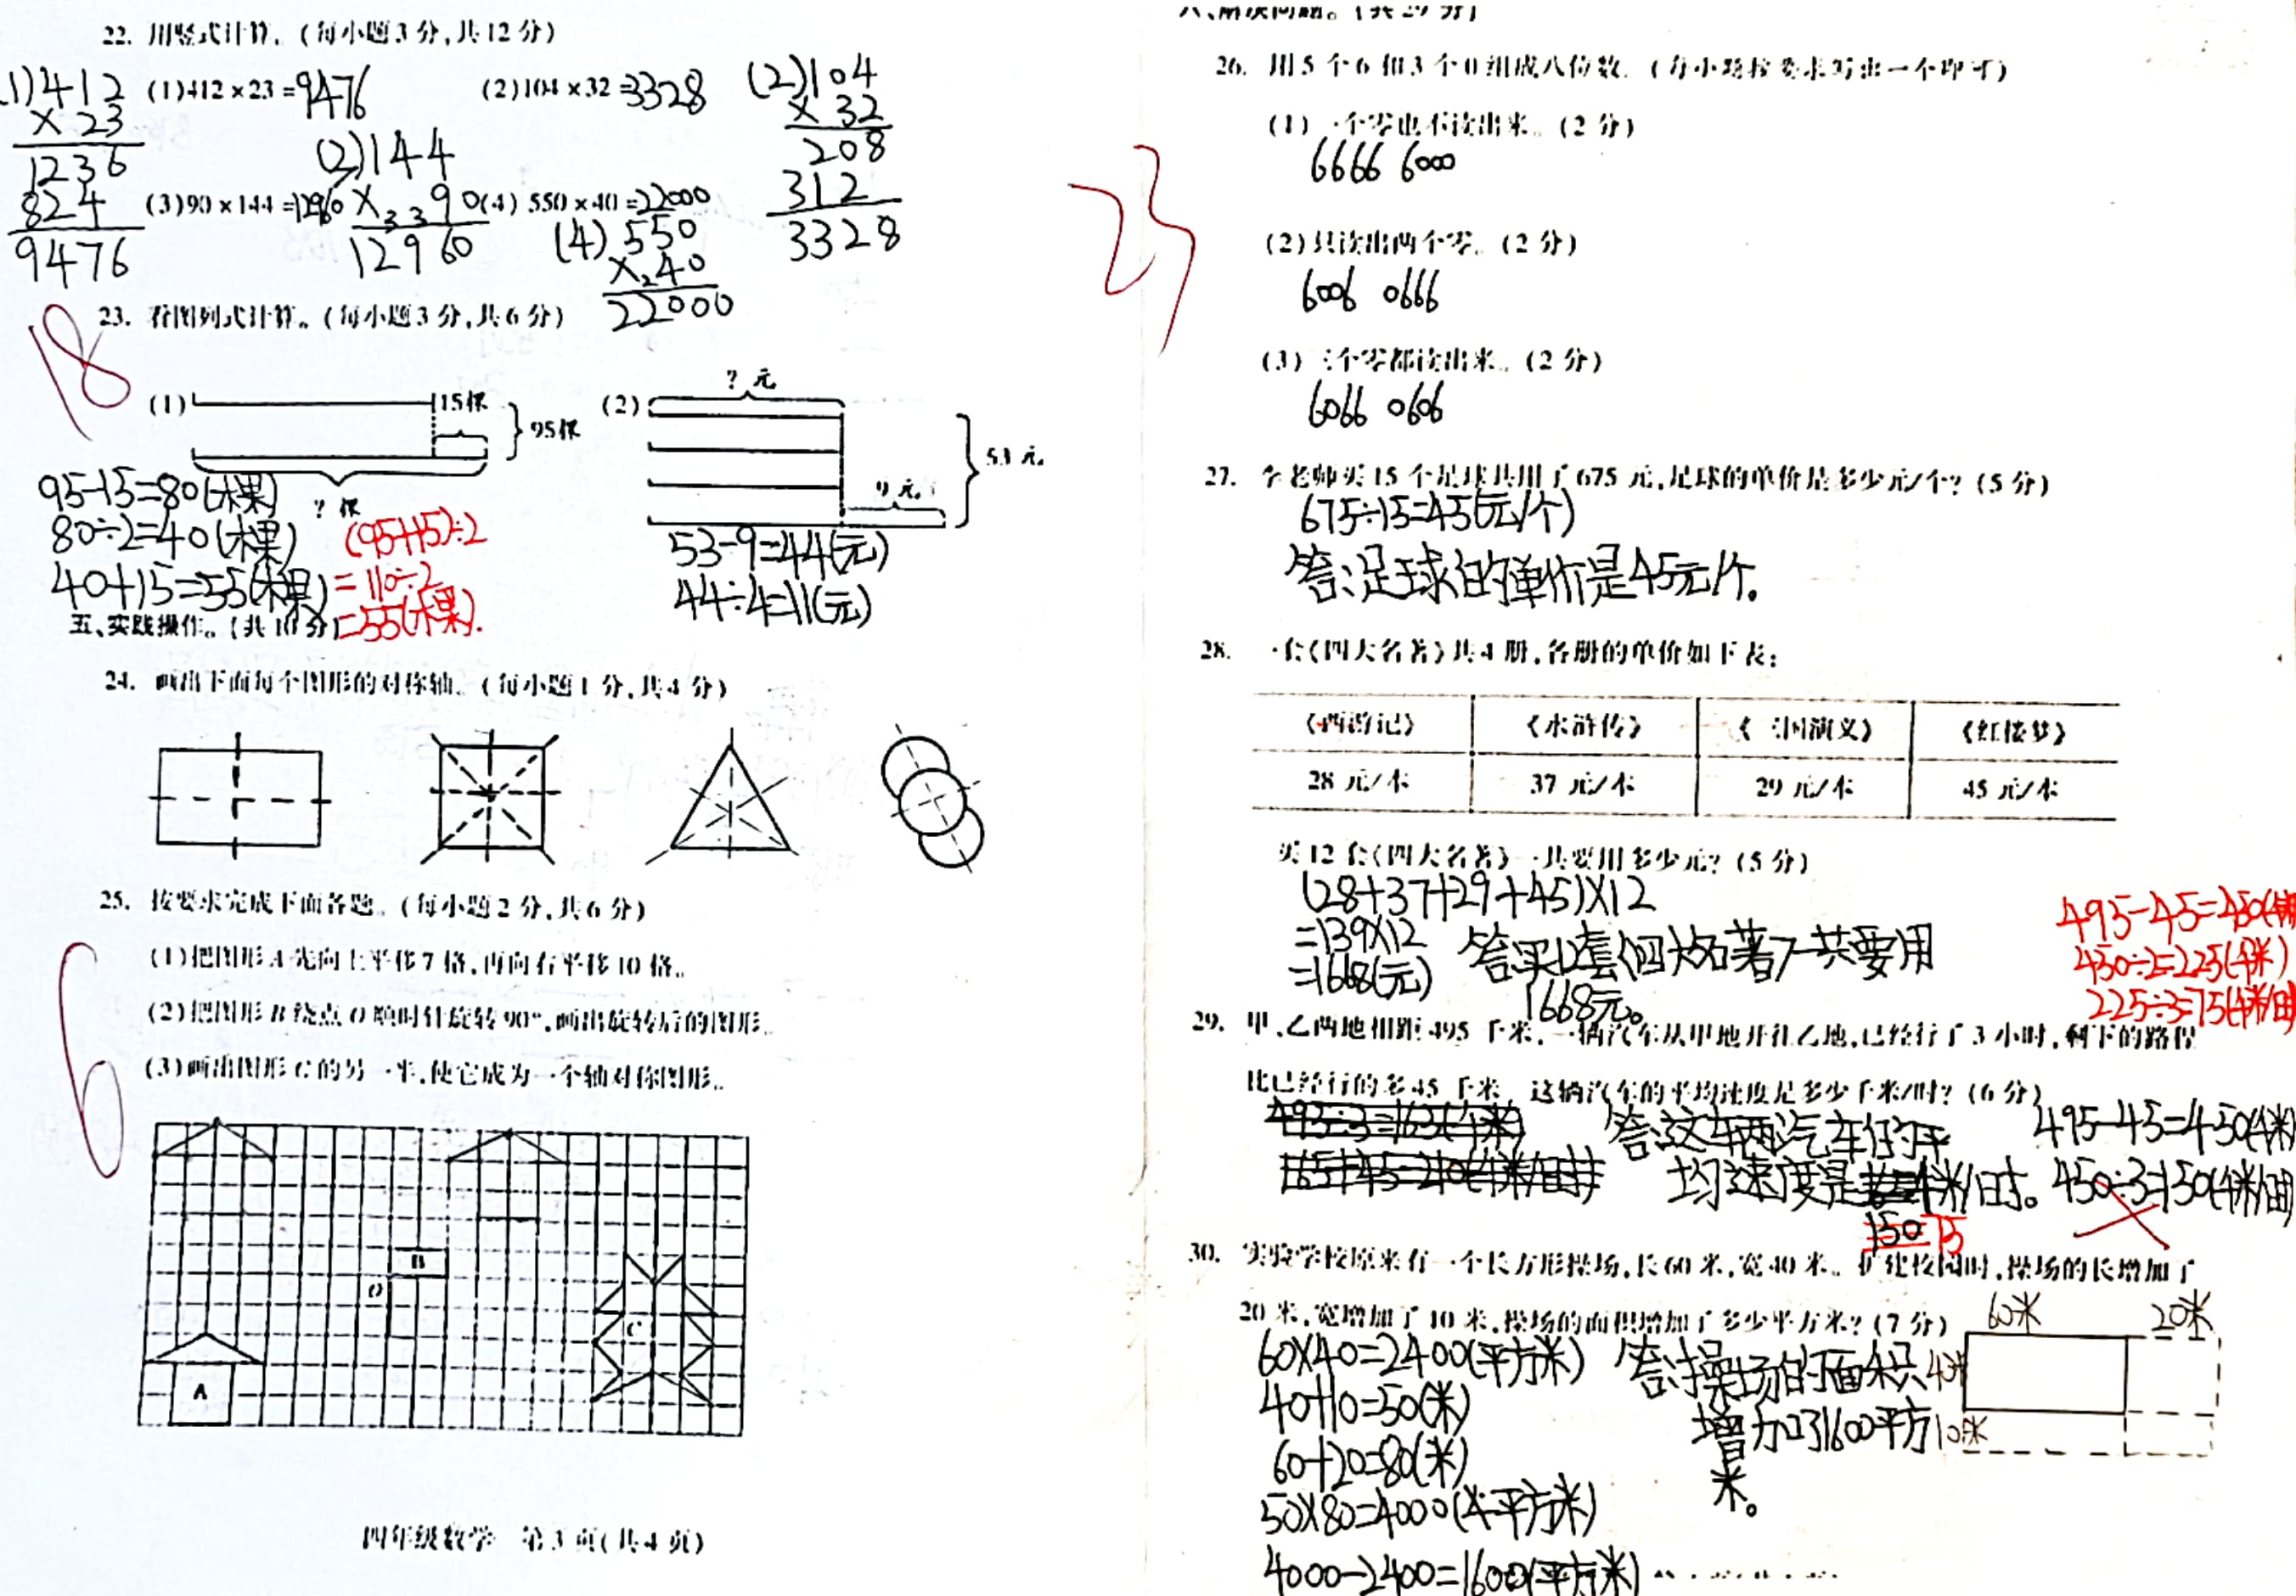 22. 用竖式计算。(每小题3分,共12分)
(1)412×23=9476
(2)104×32=3328
1)412
×23
1236
824
9476
(2)104
×32
208
312
3328
(3)90×144=12960
(2)144
×90
12960
(4) 550×40=22000
(4) 550
×40
22000
18
23. 看图列式计算。(每小题3分,共6分)
(1)
15棵
95棵
?棵
95-15=80(棵)
80÷2=40(棵)
40+15=55(棵)
(95+15)÷2
=110÷2
=55(棵).
(2)
?元
53元
9元
53-9=44(元)
44÷4=11(元)
五、实践操作。(共10分)
24. 画出下面每个图形的对称轴。(每小题1分,共4分)
25. 按要求完成下面各题。(每小题2分,共6分)
(1)把图形A先向上平移7格,再向右平移10格。
(2)把图形B绕点O顺时针旋转90°,画出旋转后的图形。
(3)画出图形C的另一半,使它成为一个轴对称图形。
6
B
O
C
A
四年级数学 第3页(共4页)
六、解决问题。(共29分)
23
26. 用5个6和3个0组成八位数。(每小题按要求写出一个即可)
(1)一个零也不读出来。(2分)
6666 6000
(2)只读出两个零。(2分)
6006 0666
(3)三个零都读出来。(2分)
6066 0606
27. 李老师买15个足球共用了675元,足球的单价是多少元/个?(5分)
675÷15=45(元/个)
答:足球的单价是45元/个。
28. 一套《四大名著》共4册,各册的单价如下表:
《西游记》 《水浒传》 《三国演义》 《红楼梦》
28元/本 37元/本 29元/本 45元/本
买12套《四大名著》一共要用多少元?(5分)
(28+37+29+45)×12
=139×12
=1668(元)
答:买12套《四大名著》一共要用
1668元。
495-45=450(千米
450÷2=225(千米)
225÷3=75(千米/时
29. 甲、乙两地相距495千米,一辆汽车从甲地开往乙地,已经行了3小时,剩下的路程
比已经行的多45千米。这辆汽车的平均速度是多少千米/时?(6分)
495÷3=165(千米)
165+45=210(千米/时)
答:这车两汽车的平
均速度是千米/时。
150 75
495-45=450(千米)
450÷3=150(千米/时)
30. 实验学校原来有一个长方形操场,长60米,宽40米。扩建校园时,操场的长增加了
20米,宽增加了10米,操场的面积增加了多少平方米?(7分)
60×40=2400(平方米)
40+10=50(米)
60+20=80(米)
50×80=4000(平方米)
4000-2400=1600(平方米)
答:操场的面积
增加了1600平方
米。
60米
20米
40米
10米